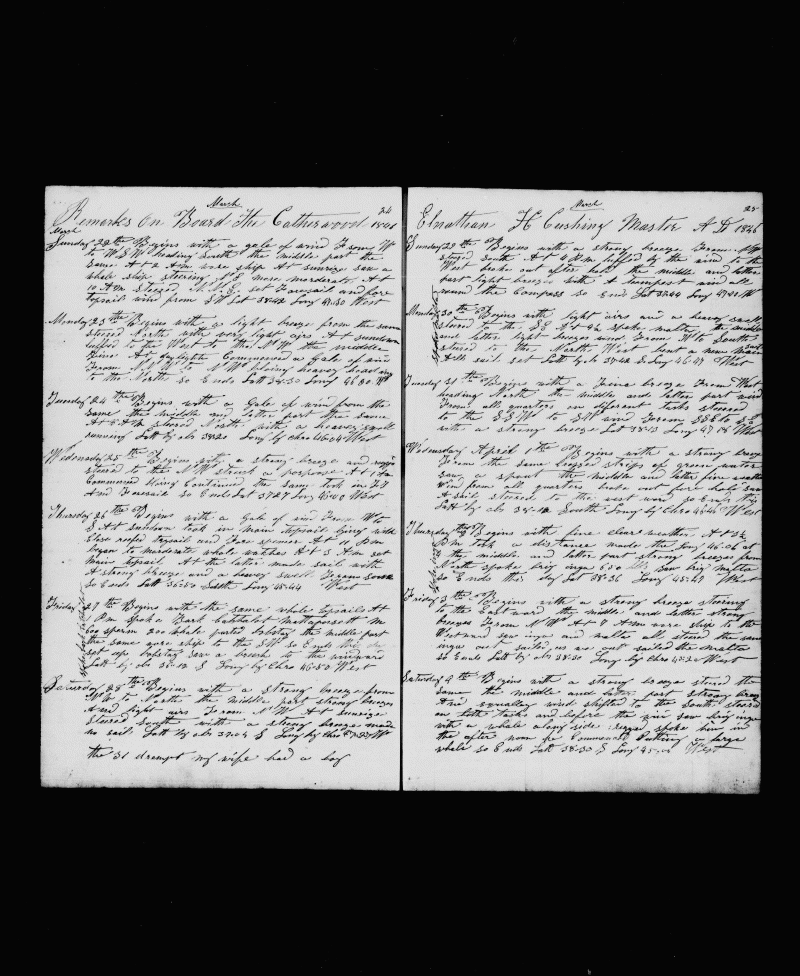 March
24
Remarks On Board The Catherwood 1846
March
Sunday 22th Begins with a gale of wind From W
to W S W heading South the middle part the
same At 2 A.m wore ship At sunrise saw a
whale ship steering N E more moderate At
10 A.m steered N N E set Foresail and fore
Topsail wind from S W Latt 38-42 Long 47-30 West
Monday 23th Begins with a light breeze from the same
steered North with very light airs At sundown
luffed to the W to the N W the middle
time At daylight Commenced a Gale of wind
From N N W to N W blowing heavey heading
to the North so Ends Latt 38-30 Long 46-30 W
Tuesday 24th Begins with a Gale of wind from the
same the middle and latter part the same
At 8 A.m steered North with a heavey swell
running Latt by obs 38-20 Long by chro 46-04 West
Wednesday 25th Begins with a strong breeze and
steered to the N W struck a porpoise At 1 A.m
Commenced Continued the same took in F T
And Foresail so Ends Lat 37-27 Long 46-40 West
Thursday 26th Begins with a Gale of wind From W to
S At sundown took in main Topsail lying with
Close reefed Topsail and Fore spencer At 11 P.m
began to moderate whole watches At 3 A.m set
Main Topsail At the latter made sail with
A strong breeze and a heavey swell From South
so Ends Latt 36-50 South Long 48-44 West
Friday 27th Begins with the same whole topsails At
1 P.m spoke Bark Mattapoisett
600 sperm 200 whale parted bobstay the middle part
the same wore ship to the S W so Ends
set up bobstay saw a breach to the windward
Latt by obs 36-12 S Long by Chro 46-50 West
Saturday 28th Begins with a strong breeze from
N W to North the middle part strong breezes
And light airs From N W At sunrise
Steered South with a strong breeze made
no sail Latt by obs 37-04 S Long by Chro W
the 31 drempt my wife had a boy
March
25
Elnathan H Cushing Master A D 1846
Sunday 29th Begins with a strong breeze From N W
steered South At 4 P.m luffed by the wind to the
West broke out after hold the middle and latter
part light breezes with A tempest wind all
round the Compass so Ends Lat 37-44 Long 47-21 W
Monday 30th Begins with light airs and a heavy swell
steered to the S E At 4 spoke malta the middle
and latter light breezes wind From W to South
steered to the North West bent a new main
sail Latt by obs 37-42 S Long 46-47 West
Tuesday 31th Begins with a Fine breeze From West
heading North the middle and latter part wind
From all quarters on diferant tacks steered
to the S S W to S W wind From S S E to
with a strong breeze Lat 38-13 Long 47-18 West
Wednesday April 1th Begins with a strong breeze
From the same crossed strips of green water
saw a spout the middle and latter fine weather
wind from all quarters broke out fore hold saw
A sail steered to the west ward so Ends
Latt by obs 38-12 South Long by Chro 46-46 West
Thursday 2th Begins with fine clear weather At 3½
P.m took a distance made the Long 46-06 at
6 the middle and latter part strong breezes from
North spoke brig inga 650 saw brig malta
so Ends this day Lat 38-36 Long 45-49 West
Friday 3th Begins with a strong breeze steering
to the East ward the middle and latter strong
breezes From N W At 7 A.m wore ship to the
West ward saw inga and malta all steered the same
inga out sailed us we out sailed the malta
so Ends Latt by obs 38-30 Long by Chro West
Saturday 4th Begins with a strong breeze steered the
same the middle and latter part strong breeze
And squalley wind shifted to the South steered
on both tacks and before the wind saw brig inga
with a whale along side spoke him in
the after noon he Commenced Cutting a large
whale so Ends Latt 38-30 S Long West